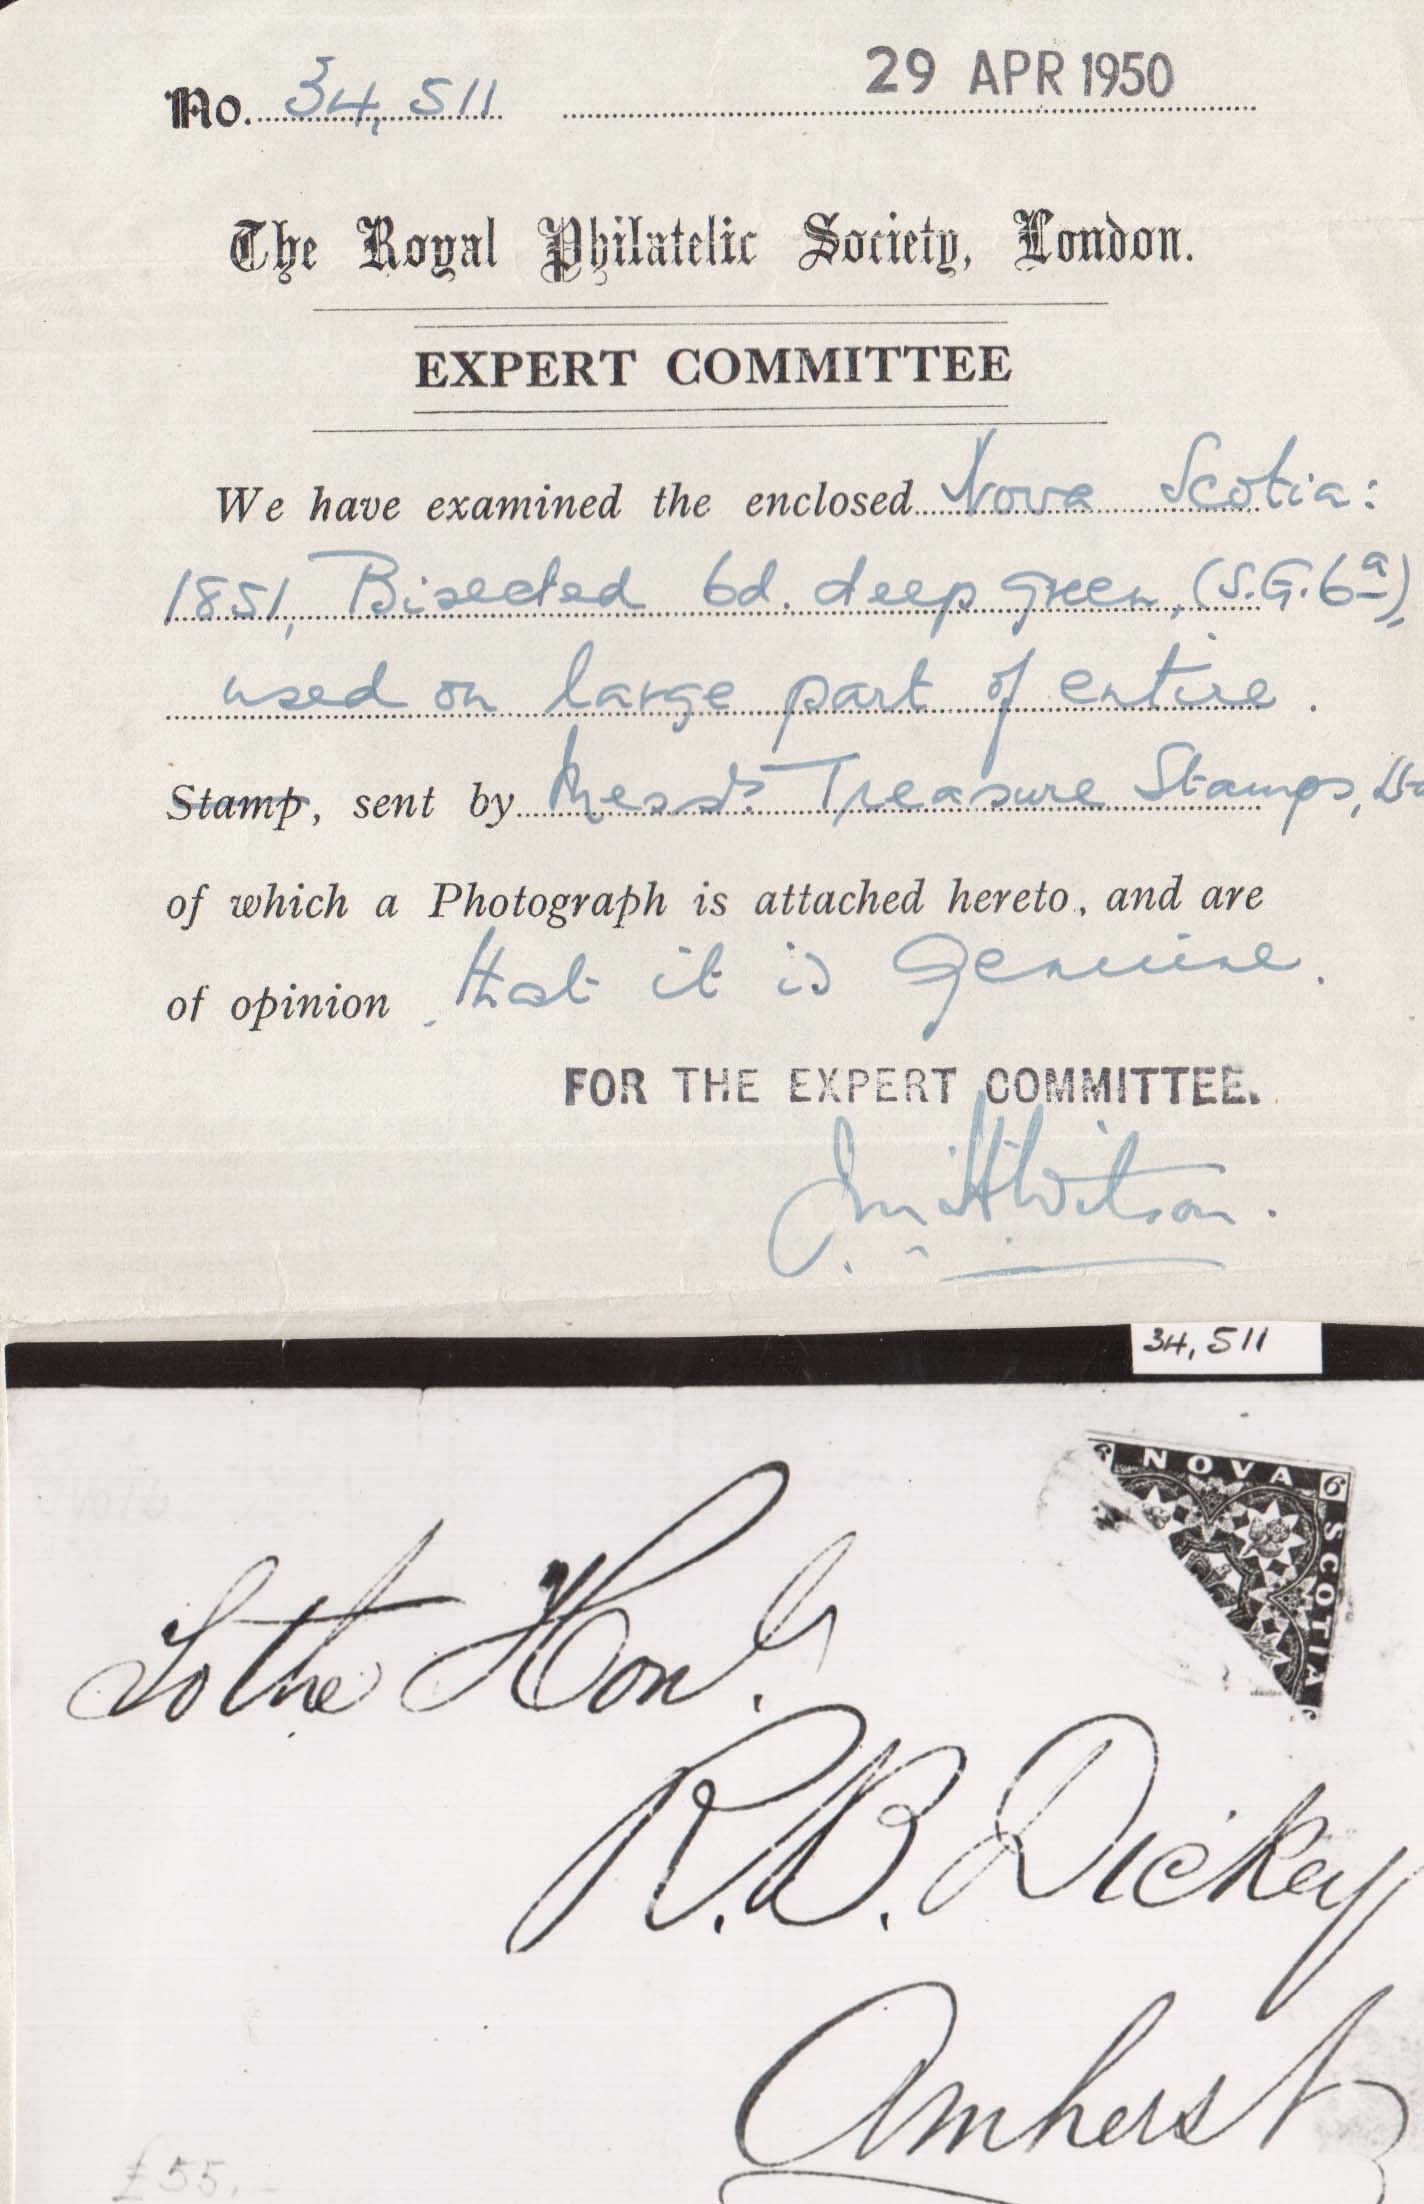 No. 34,511
29 APR 1950
The Royal Philatelic Society, London.
EXPERT COMMITTEE
We have examined the enclosed Nova Scotia:
1851, Bisected 6d. deep green, (S.G.6a),
used on large part of entire.
Stamp, sent by Messrs. Treasure Stamps,
of which a Photograph is attached hereto, and are
of opinion that it is genuine.
FOR THE EXPERT COMMITTEE.
Wilson.
34,511
6 NOVA 6
SCOTIA
To the Hon.
R. B. Dickey
Amherst
£55.-